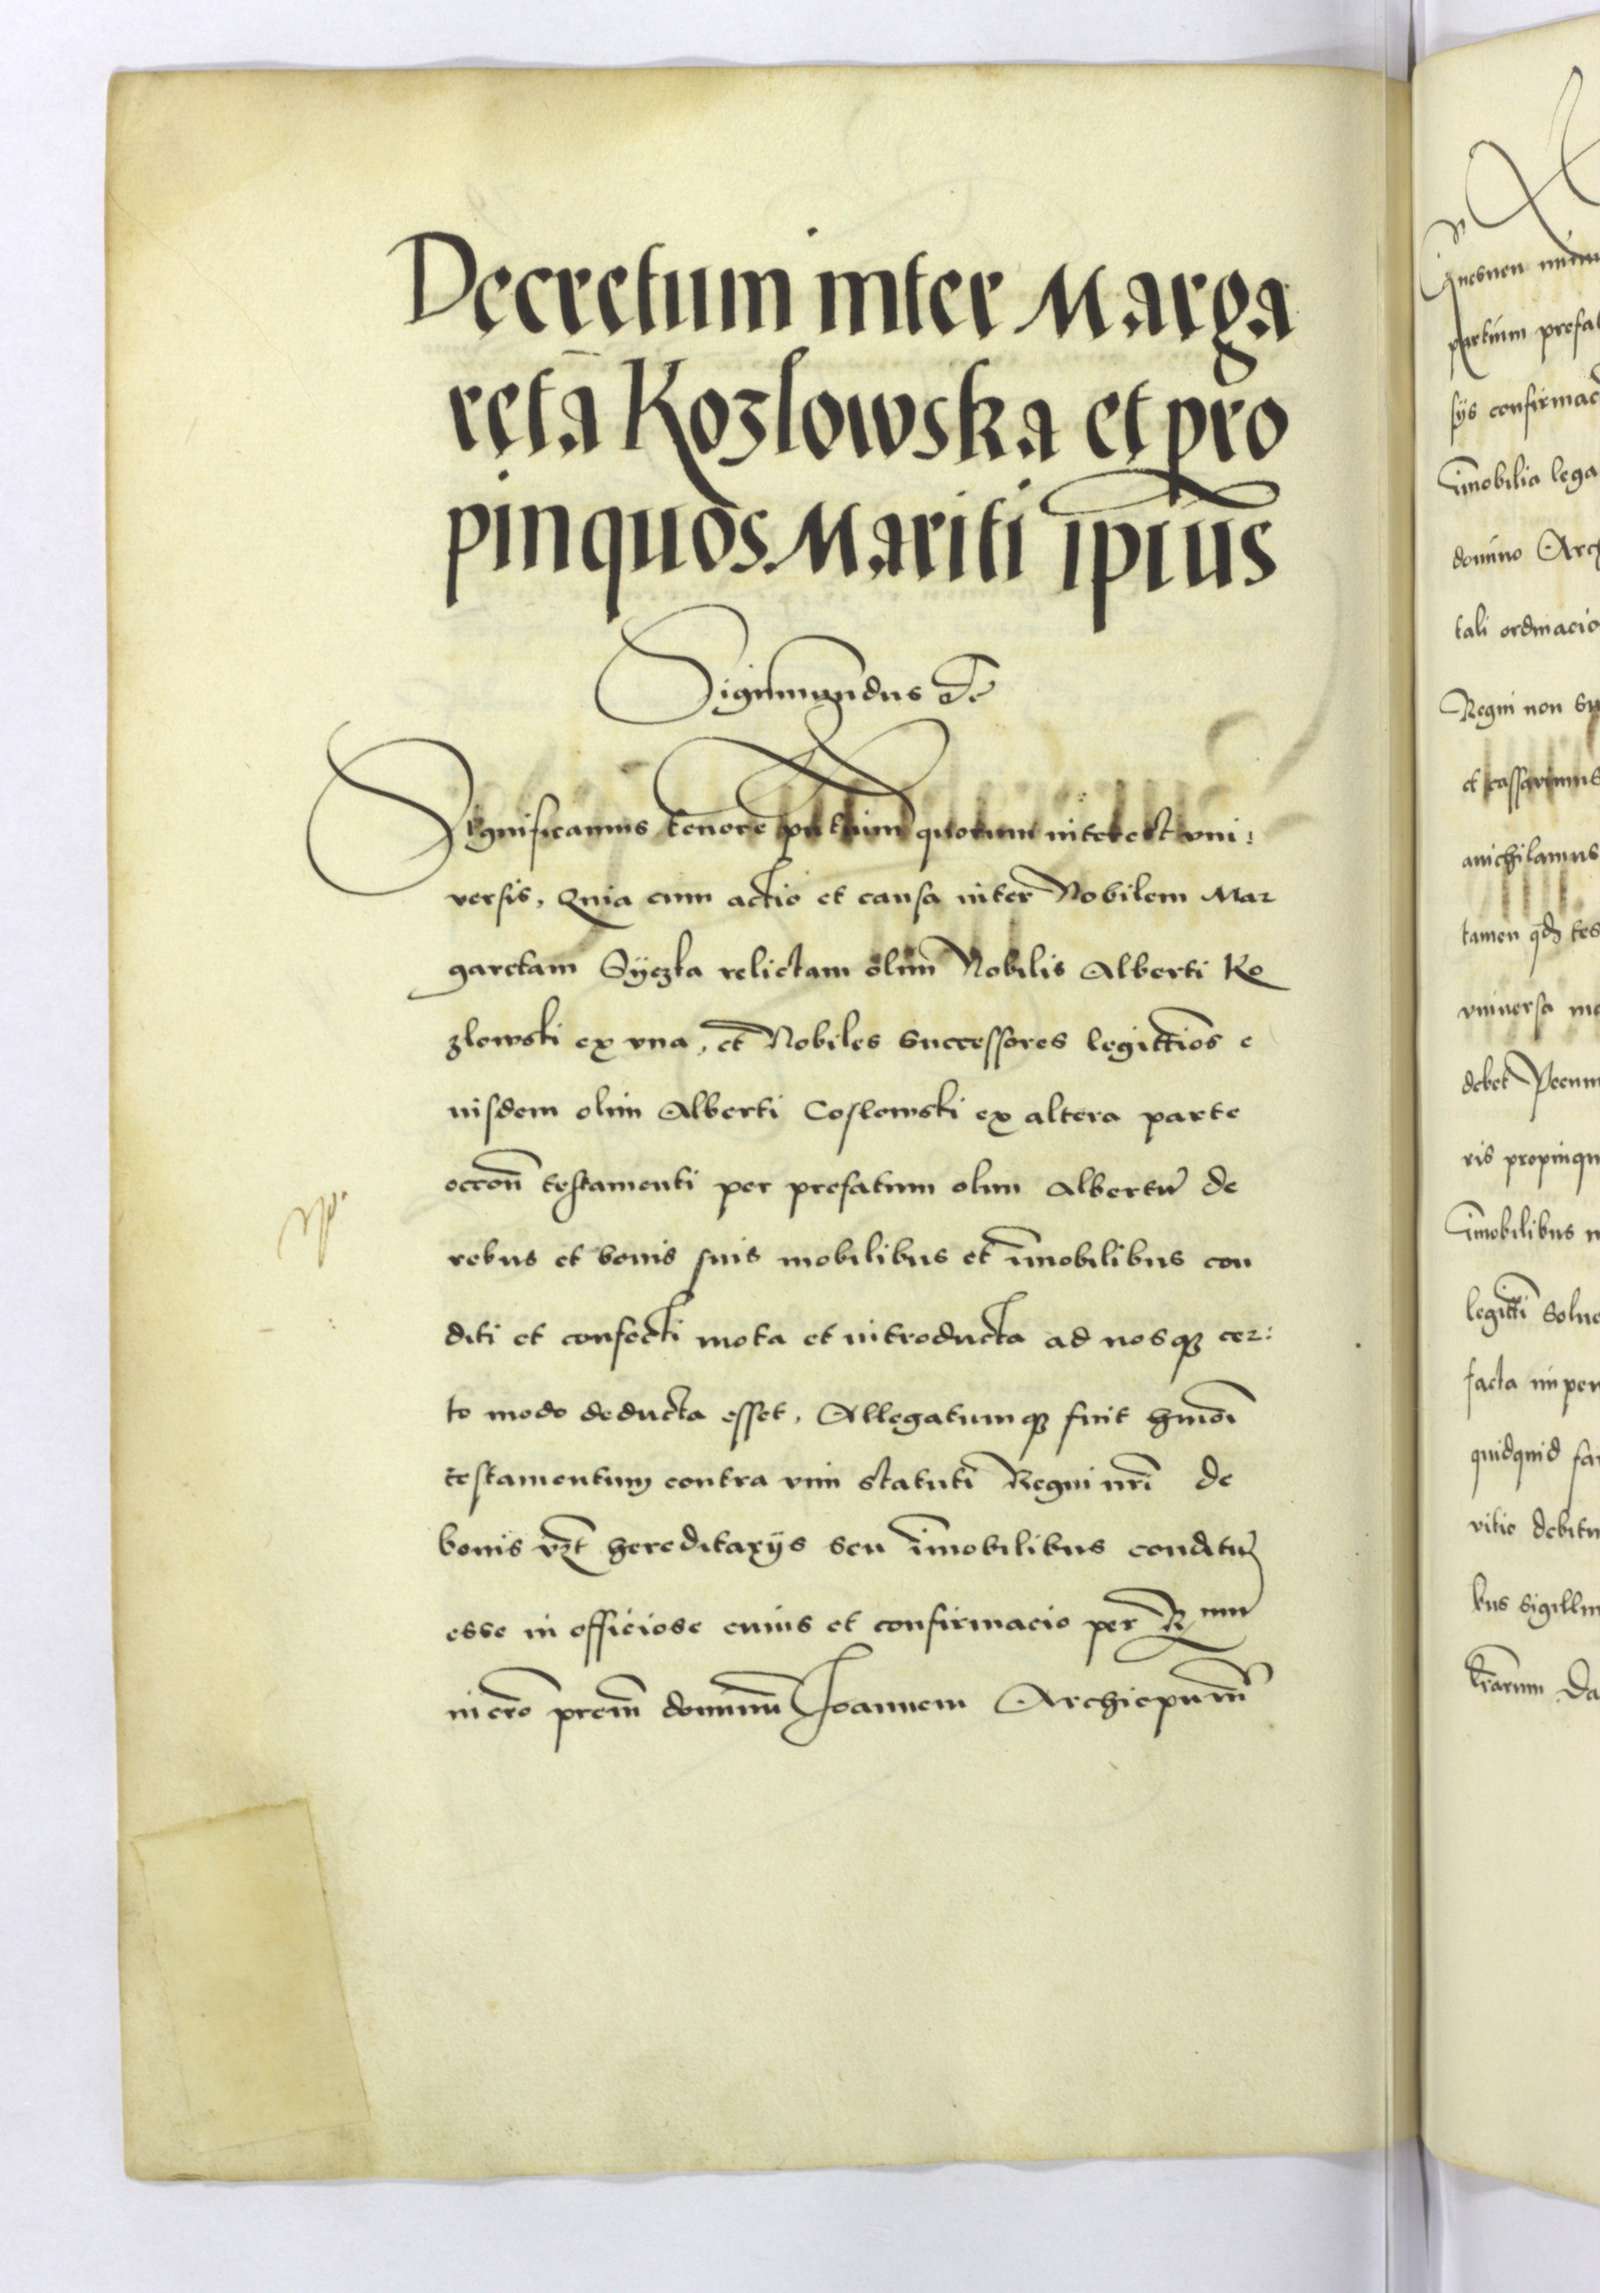 Decretum inter Marga
retā Kozlowska et pro
pinquos Mariti ip̄ius
Sigismundus
Significamus tenore pn̄tium quorum interest vni:
versis, Quia cum actio et causa inter Nobilem Mar
garetam Syczka relictam olim Nobilis Alberti Ko
zlowski ex vna, et Nobiles successores legittīos e
iusdem olim Alberti Coslowski ex altera parte
occōn testamenti per prefatum olim Albertū de
rebus et bonis suis mobilibus et īmobilibus con
diti et confecti mota et introducta ad nosq3 cer:
to modo deducta esset, Allegatumq3 fuit hmōi
testamentum contra vim statuti Regni nr̄i de
bonis vz̄t hereditarijs seu īmobilibus conditū
esse in officiose cuius et confirmacio per R mum
in cr̄o pr̄em dominū Joannem Archiepum̄
Gnesnen
partium
sijs
īmobilia
domino
tali
Regni non
et cassavimus
anichilamus
tamen qd̄
vniversa
debet
ris
īmobilibus
legittī
facta
quidquid
vitio
bus
Da